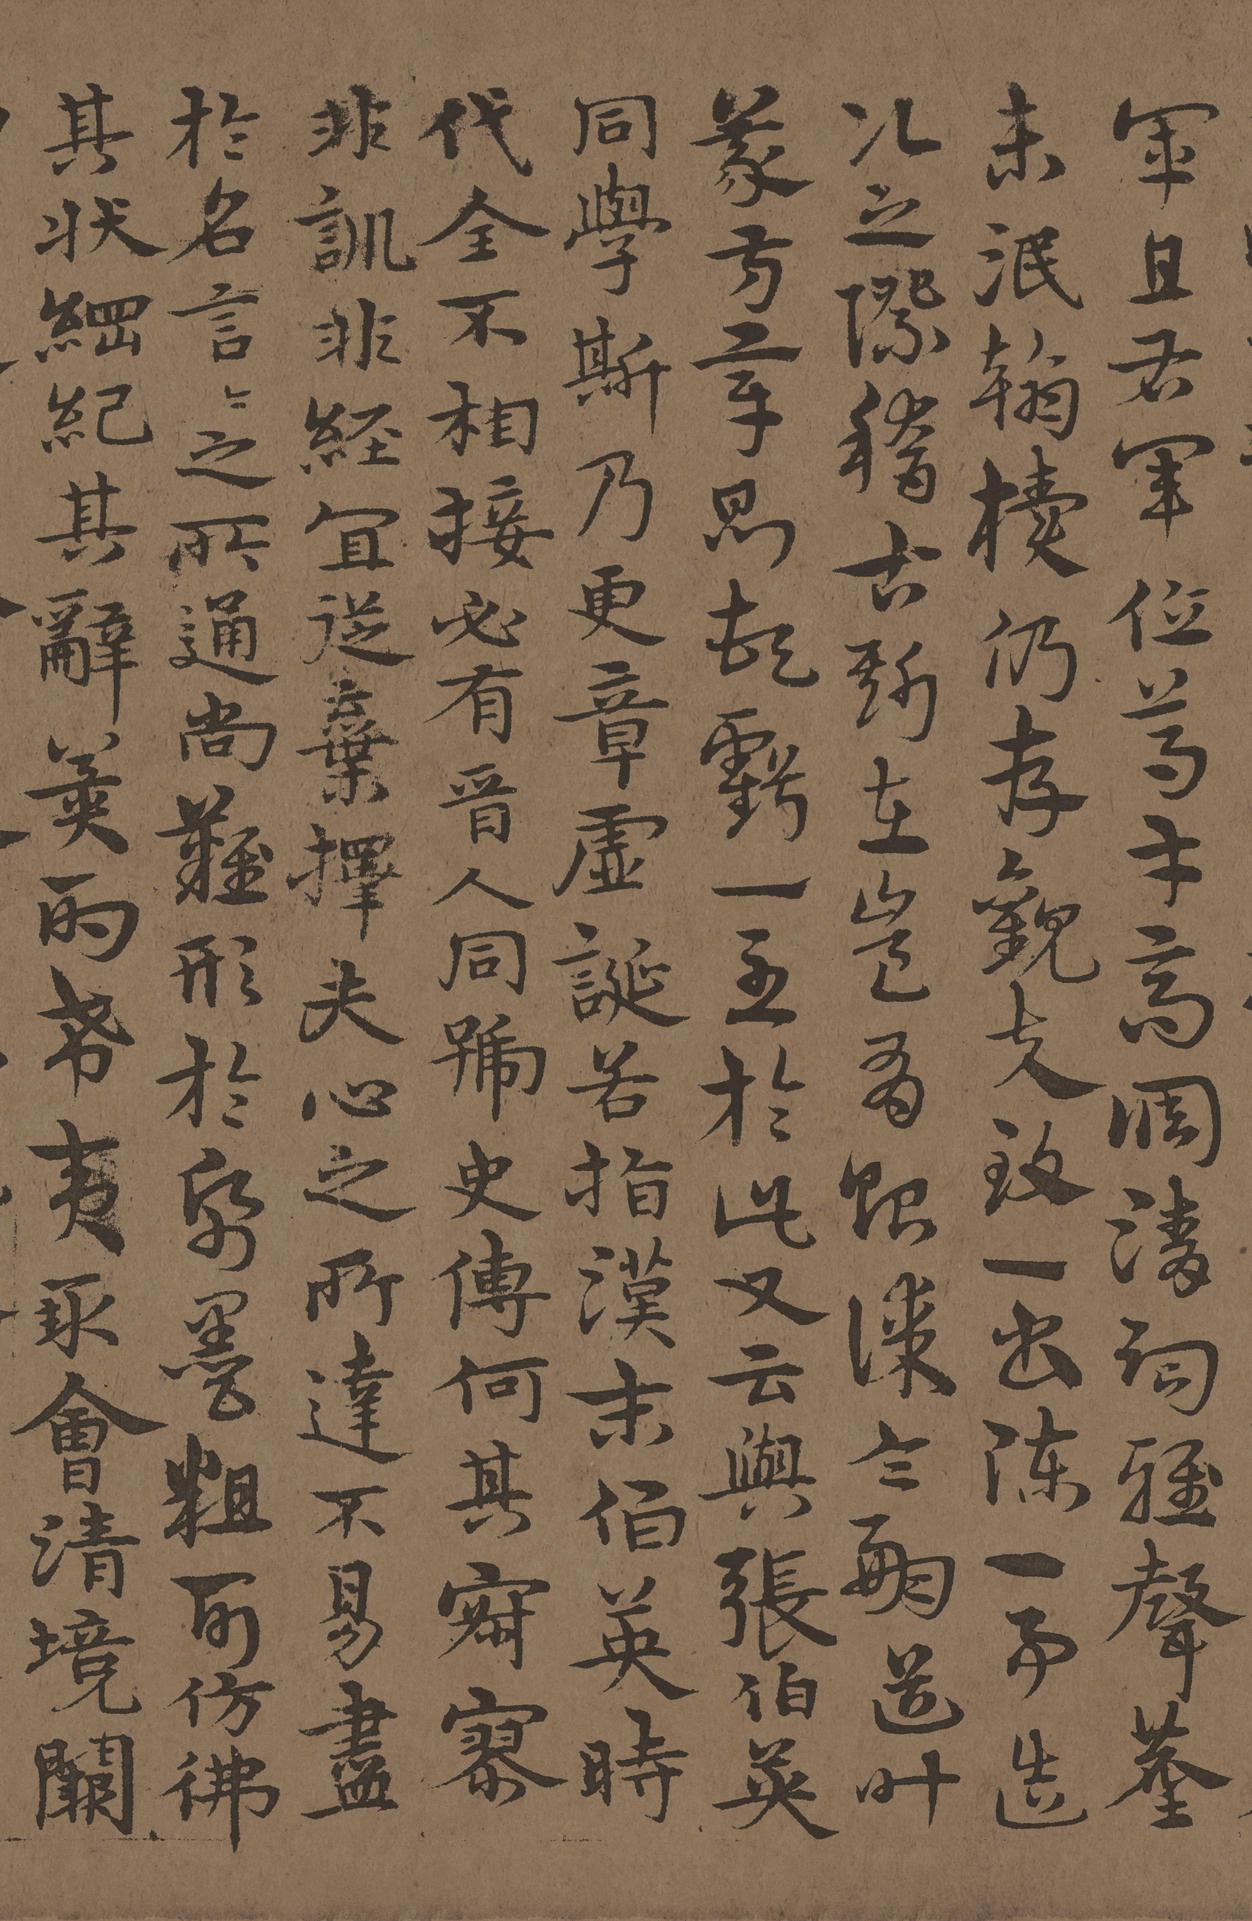 軍且右軍位重才高調清詞雅聲塵
未泯翰牘仍存觀夫致一書陳一事造
次之際稽古斯在豈有貽謀令嗣道叶
義方章則頓虧一至於此又云與張伯英
同學斯乃更章虛誕若指漢末伯英時
代全不相接必有晉人同號史傳何其寂寥
非訓非經宜從棄擇夫心之所達不易盡
於名言々之所通尚難形於紙墨粗可仿彿
其狀綱紀其辭冀酌希夷取會清境闕